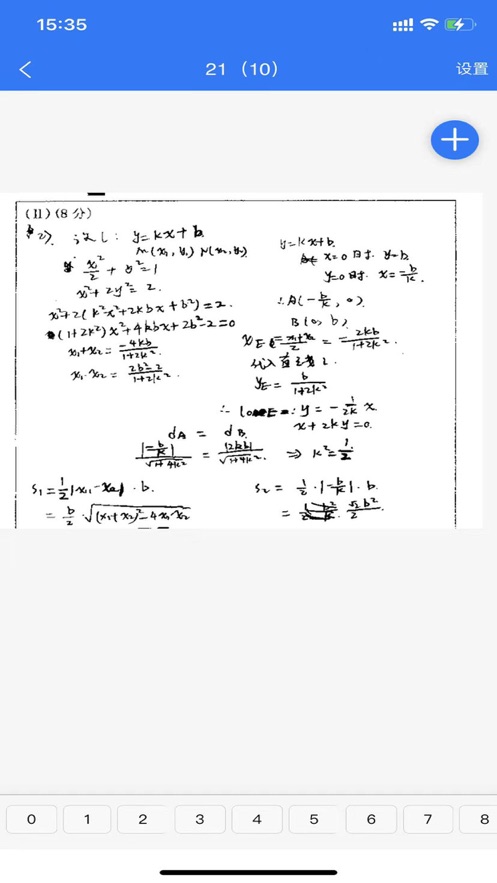 15:35
21（10）
设置
(II)(8分)
(2) 设 l: y=kx+b.
M(x₁,y₁) N(x₂,y₂)
x²/2 + y²=1
x²+2y²=2.
x²+2(k²x²+2kbx+b²)=2.
(1+2k²)x²+4kbx+2b²-2=0
x₁+x₂= -4kb/1+2k².
x₁·x₂= 2b²-2/1+2k².
y=kx+b.
x=0时. y=b
y=0时. x=-b/k.
∴A(-b/k, 0).
B(0,b)
x_E=x₁+x₂/2 = -2kb/1+2k².
代入直线 l.
y_E= b/1+2k²
∴ l_OE: y=-1/2k x.
x+2ky=0.
d_A = d_B.
|-b/k|/√1+4k² = |2kb|/√1+4k². ⇒ k²=1/2
S₁=1/2|x₁-x₂|·b.
= b/2·√(x₁+x₂)²-4x₁x₂
S₂= 1/2·|-b/k|·b.
= √2b²/2.
0 1 2 3 4 5 6 7 8